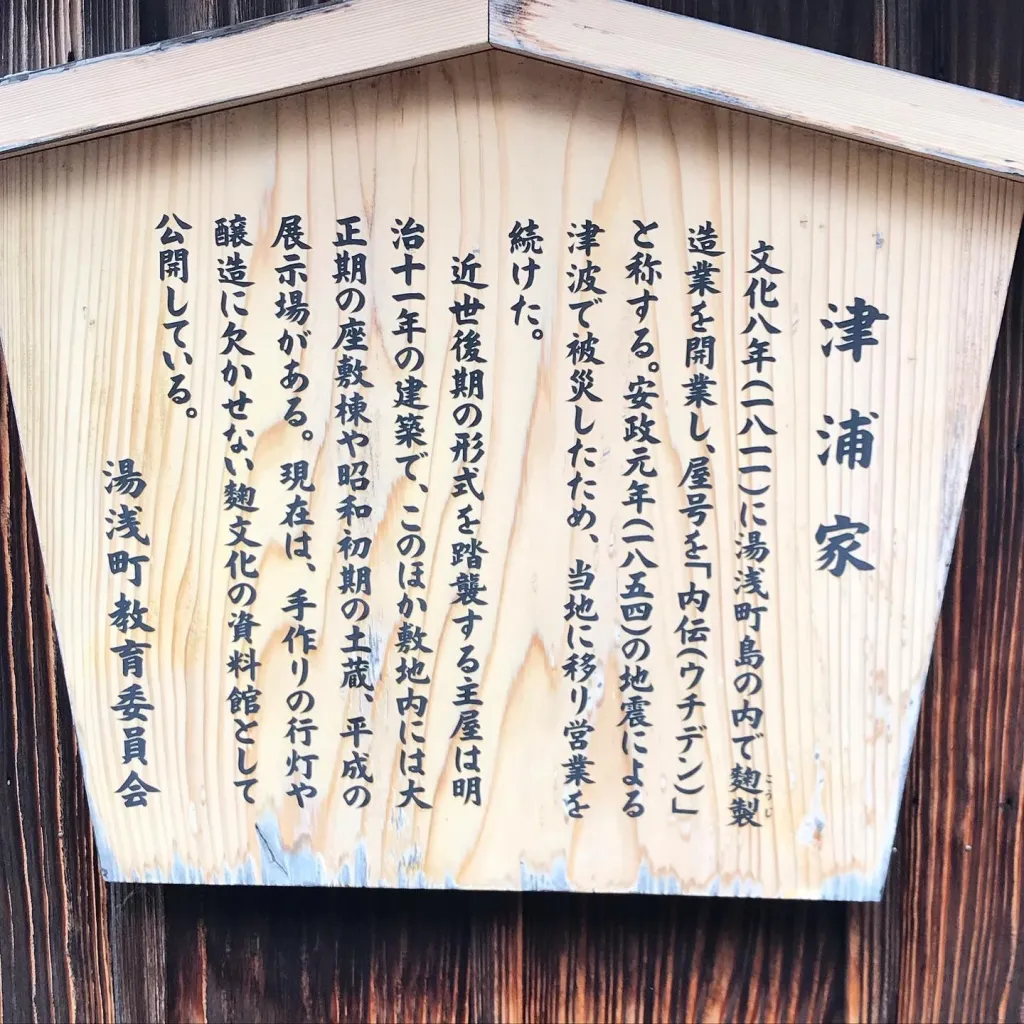 津浦家
文化八年(一八一一)に湯浅町島の内で麹製
こうじ
造業を開業し、屋号を「内伝(ウチデン)」
と称する。安政元年(一八五四)の地震による
津波で被災したため、当地に移り営業を
続けた。
近世後期の形式を踏襲する主屋は明
治十一年の建築で、このほか敷地内には大
正期の座敷棟や昭和初期の土蔵、平成の
展示場がある。現在は、手作りの行灯や
醸造に欠かせない麹文化の資料館として
公開している。
湯浅町教育委員会